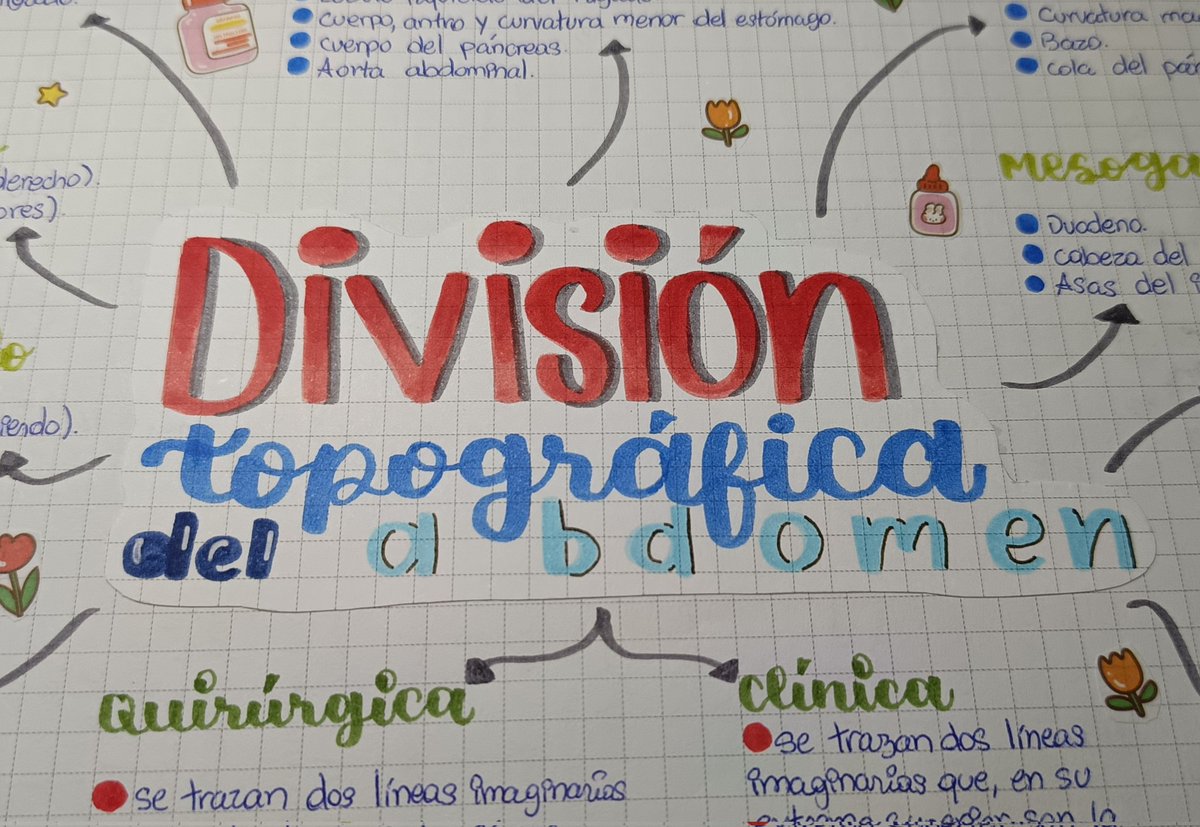 cuerpo, antro y curvatura menor del estómago.
cuerpo del páncreas.
Aorta abdominal.
Curvatura
Bazo.
cola del
derecho).
Duodeno.
cabeza del
Asas del
División
topográfica
del abdomen
Quirúrgica
se trazan dos líneas imaginarias
Clínica
se trazan dos líneas
imaginarias que, en su